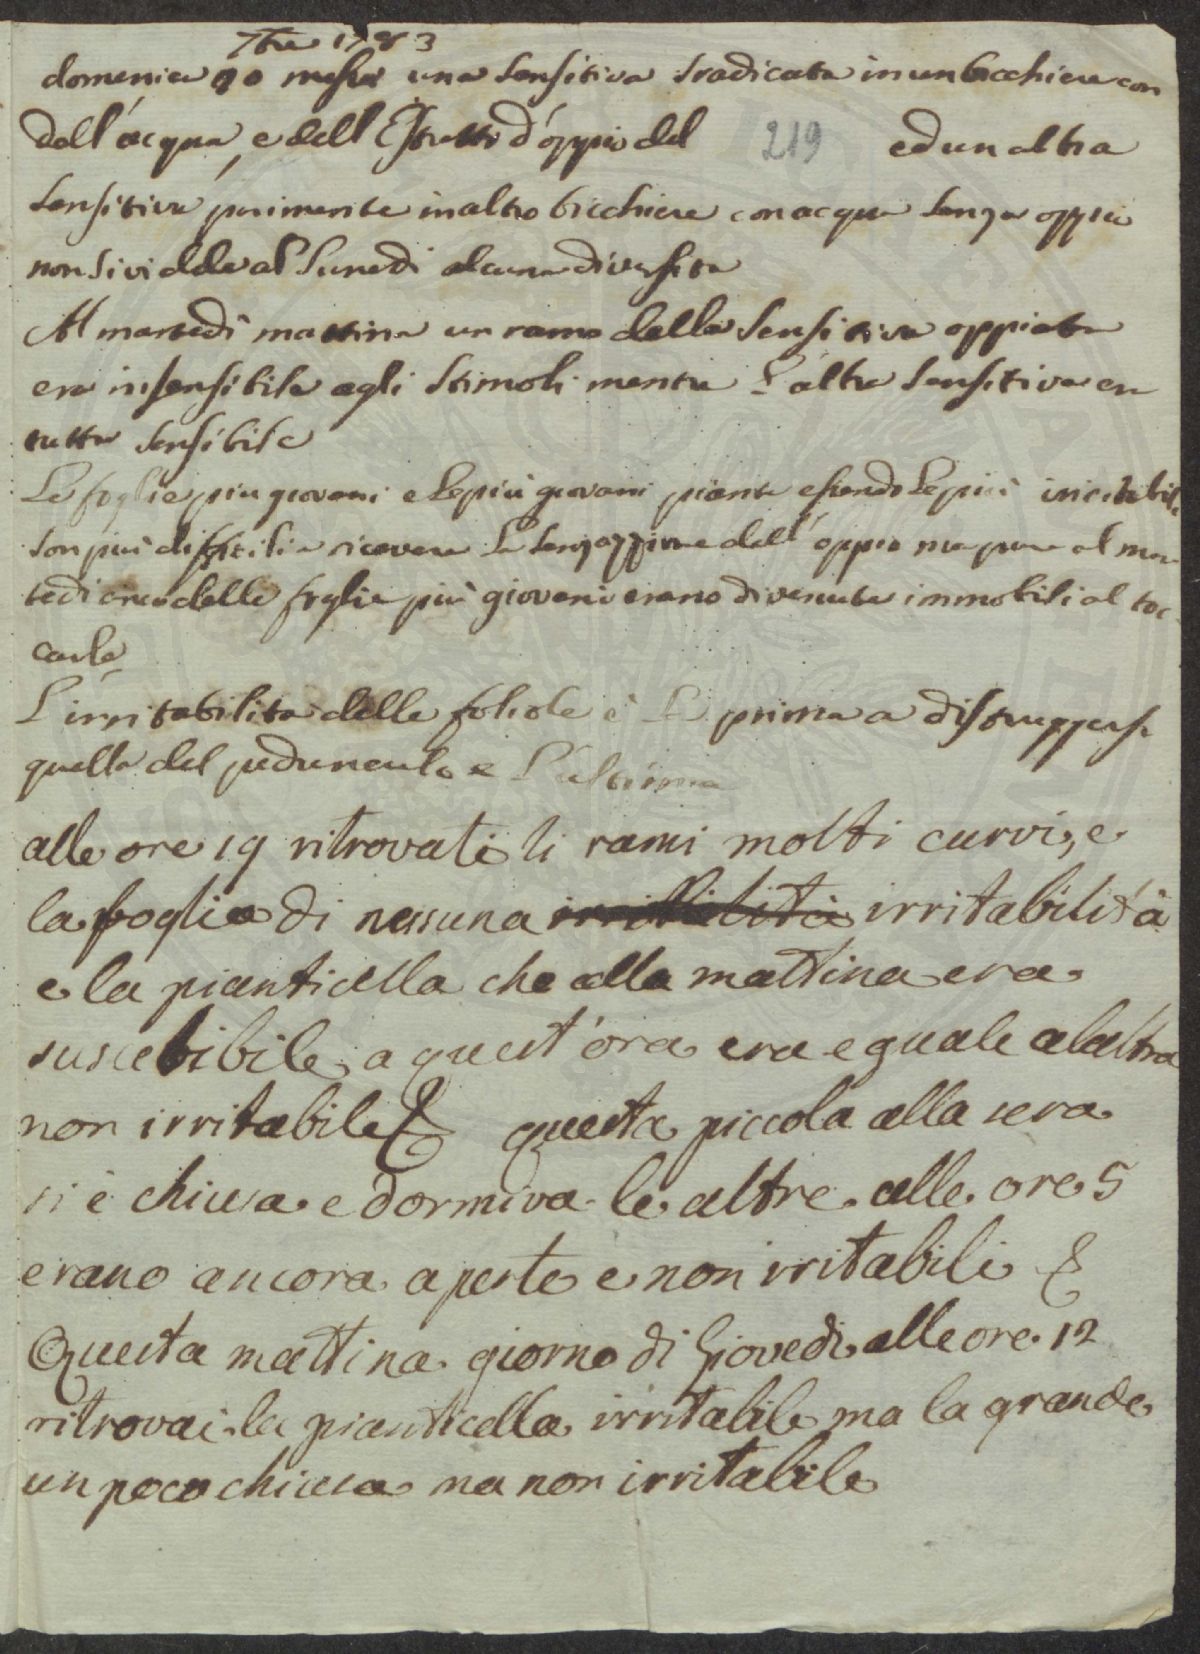 7bre 1783
domenica messa una Sensitiva Sradicata in un bicchiere con
dell'acqua, e dell'Estratto d'oppio del 219 ed un altra
Sensitiva parimente in altro bicchiere con acqua Senza oppio
non Si vidde al Lunedì alcuna diversita
Al martedì mattina un ramo della Sensitiva oppiata
era insensibile agli Stimoli mentre l'altra Sensitiva era
tutta Sensibile
Le foglie piu giovani e le più giovani piante essendo le più irritabili
Son più difficili a ricevere la dell'oppio ma pure al mar
tedi delle foglie più giovani erano divenute immobili al toc
carle
L'irritabilita delle foliole è la prima a distruggersi
quella del peduncolo e l'ultima
alle ore 19 ritrovati li rami molti curvi, e
la foglia di nessuna irritabilità irritabilità
e la pianticella che alla mattina era
suscebibile, a quest'ora era eguale alaltra
non irritabile & questa piccola alla sera
si è chiusa e dormiva le altre alle ore 5
erano ancora aperte e non irritabili &
Questa mattina giorno di Giovedi alle ore 12
ritrovai la pianticella irritabile ma la grande
un poco chiusa ma non irritabile